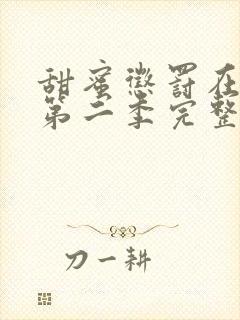 甜蜜惩罚在
第二季完整
刀一耕